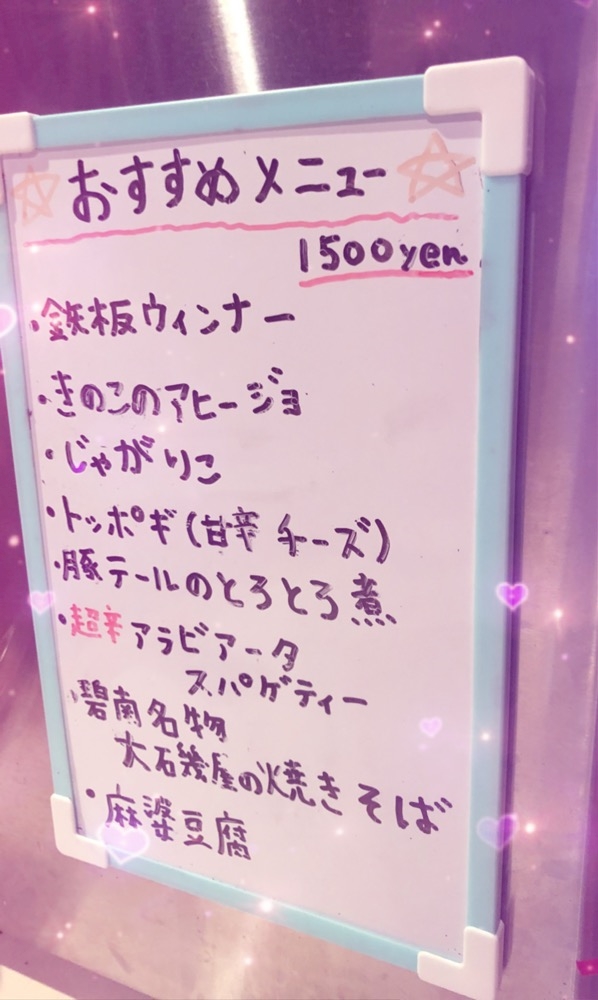 おすすめメニュー
1500yen
・鉄板ウィンナー
・きのこのアヒージョ
・じゃがりこ
・トッポギ(甘辛チーズ)
・豚テールのとろとろ煮
・超辛アラビアータ
スパゲティー
・碧南名物
大石幾屋の焼きそば
・麻婆豆腐